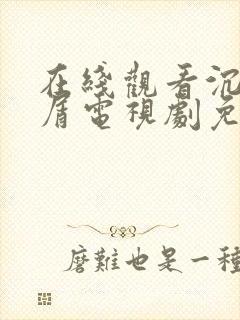 在綫觀看沉
盾電視劇免
磨難也是一種